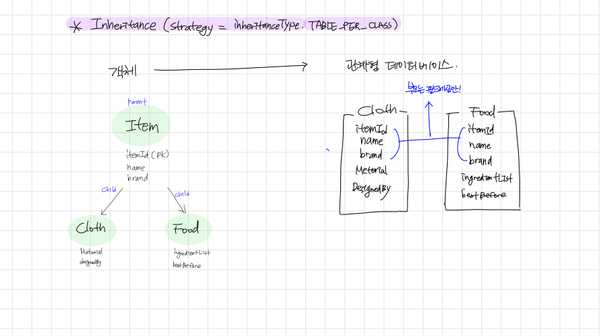 * Inheritance (strategy = inheritanceType. TABLE_PER_CLASS)
객체
관계형 데이터베이스.
parent
Item
itemId (pk)
name
brand
child
child
Cloth
Material
designedBy
Food
ingredientList
bestBefore
Cloth
itemId
name
brand
Meterial
DesignedBy
Food
itemId
name
brand
ingredientList
bestBefore